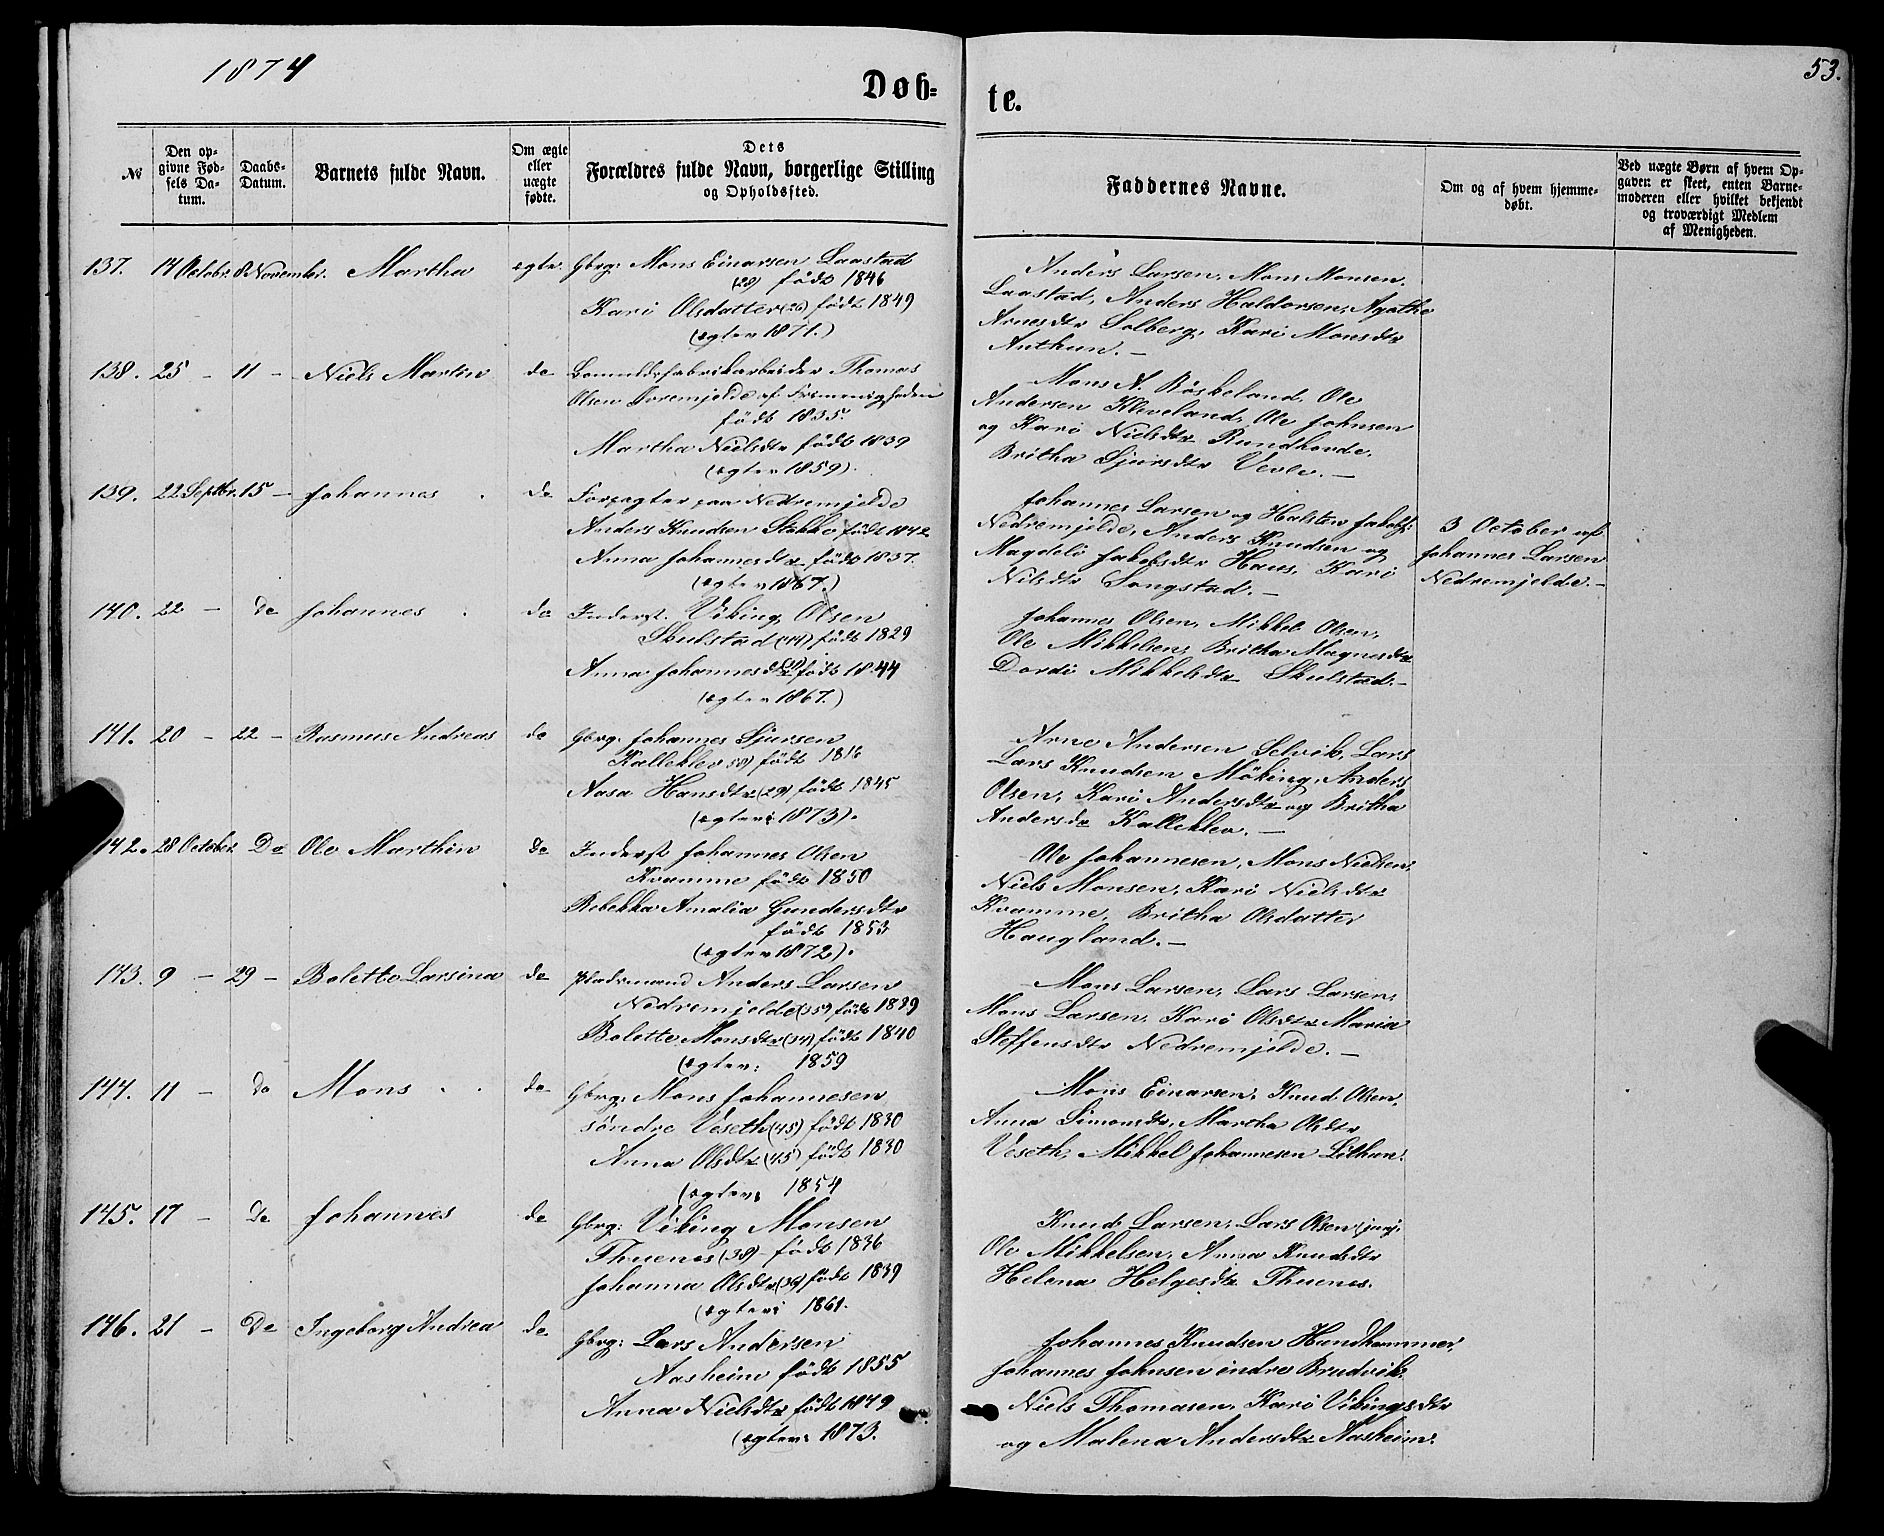 1874
53.
Døb-
te.
№
Den op-
givne Fød-
sels Da-
tum.
Daabs-
Datum.
Barnets fulde Navn.
Om ægte
eller
uægte
fødte.
Dets
Forældres fulde Navn, borgerlige Stilling
og Opholdssted.
Faddernes Navne.
Om og af hvem hjemme-
døbt.
Ved uægte Børn af hvem Op-
gaven er skeet, enten Barne-
moderen eller hvilket bekjendt
og troværdigt Medlem
af Menigheden.
137. 14 Octobr. 8 November. Martha ægte. Gbrg: Mons Einarsen Laastad
(28) født 1846
Kari Olsdatter (26) født 1849
(egtev 1871.)
Anders Larsen, Mons Monsen
Laastad, Anders Haldorsen, Agathe
Arnesdtr Solberg, Kari Monsdtr
Anthun. —
138. 25 – 11 – Niels Martin do Bomuldsfabrikarbeider Thomas
Olsen Boremjelde af Frimenigheden
født 1835.
Martha Nielsdtr født 1839
(egtev 1859).
Mons N. Røskeland, Ole
Andersen Kleveland, Ole Johnsen
og Kari Nielsdtr Rundhovde,
Britha Sjursdtr Vevle. —
139. 22 Septbr. 15 – Johannes do Forpagter paa Nedremjelde
Anders Knudsen Stokke født 1842
Anna Johannesdtr født 1837.
(egtev 1867.)
Johannes Larsen og Halsten Jakobs:
Nedremjelde, Anders Knudsen og
Magdeli Jakobsdtr Haus, Kari
Nilsdtr Songstad. —
3 October af
Johannes Larsen
Nedremjelde. –
140. 22 – do Johannes do Inderst. Viking Olsen
Skulstad (44) født 1829
Anna Johannesdtr (30) født 1844
(egtev 1867.)
Johannes Olsen, Mikkel Olsen,
Ole Mikkelsen, Britha Magnesdtr
Dordi Mikkelsdtr Skulstad. –
141. 20 – 22 – Rasmus Andreas do Gbrg: Johannes Sjursen
Kalleklev (58) født 1816
Aasa Hansdtr (29) født 1845
(egtev: 1873).
Arne Andersen Selvik, Lars
Lars Knudsen Møking, Anders
Olsen, Kari Andersdtr og Britha
Andersdr Kalleklev. —
142. 28 October Do Ole Marthin do Inderst Johannes Olsen
Kvamme født 1850
Rebekka Amalia Gundersdtr
født 1853
(egtev 1872).
Ole Johannesen, Mons Nielsen,
Niels Monsen, Kari Nielsdtr
Kvamme, Britha Olsdatter
Haugland. —
143. 9 – 29 – Bolette Larsina do Pladsmand Anders Larsen
Nedremjelde (35) født 1839
Bolette Monsdtr (34) født 1840
(egtev: 1859
Mons Larsen, Lars Larsen,
Mons Larsen, Kari Olsdtr Maria
Steffensdtr Nedremjelde. —
144. 11 – do Mons do Gbrg: Mons Johannesen
søndre Veseth (45) født 1830
Anna Olsdtr (45) født 1830
(egtev: 1854
Mons Einarsen, Knud Olsen,
Anna Simonsdtr, Martha Olsdtr
Veseth, Mikkel Johannesen Lithun.
145. 17 – Do Johannes do Gbrg: Viking Monsen
Thuenes (38) – født 1836
Johanna Olsdtr (36) født 1839
(egtev: 1861.
Knud Larsen, Lars Olsen junj.
Ole Mikkelsen, Anna Knudsdtr
Helena Helgesdtr Thuenes.
146. 21 – Do Ingeborg Andrea do Gbrg: Lars Andersen
Aasheim født 1855
Anna Nielsdtr født 1849
(egtev: 1873.
Johannes Knudsen Hundhammer,
Johannes Johnsen indre Brudvik,
Niels Thomasen, Kari Vikingsdtr
og Malena Andersdtr Aasheim.